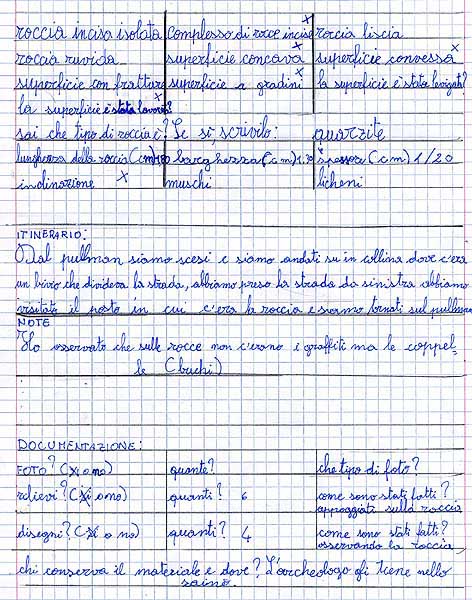 roccia incisa isolata complesso di rocce incise roccia liscia
roccia ruvida superficie concava superficie convessa
superficie con fratture superficie a gradini la superficie è stata levigata?
la superficie è stata lavorata?
sai che tipo di roccia è? Se si, scrivilo: quarzite
lunghezza della roccia (cm) larghezza (cm) 1.30 spessore (cm) 1/20
inclinazione muschi licheni
ITINERARIO:
Dal pullman siamo scesi e siamo andati su in collina dove c'era
un bivio che divideva la strada, abbiamo preso la strada da sinistra abbiamo
visitato il posto in cui c'era la roccia e siamo tornati sul pullman
NOTE
Ho osservato che sulle rocce non c'erano i graffiti ma le coppel-
le (buchi)
DOCUMENTAZIONE:
FOTO? (si o no) quante? che tipo di foto?
rilievi? (si o no) quanti? 6 come sono stati fatti?
appoggiati sulla roccia
disegni? (si o no) quanti? 4 come sono stati fatti?
osservando la roccia
chi conserva il materiale e dove? L'archeologo gli tiene nello